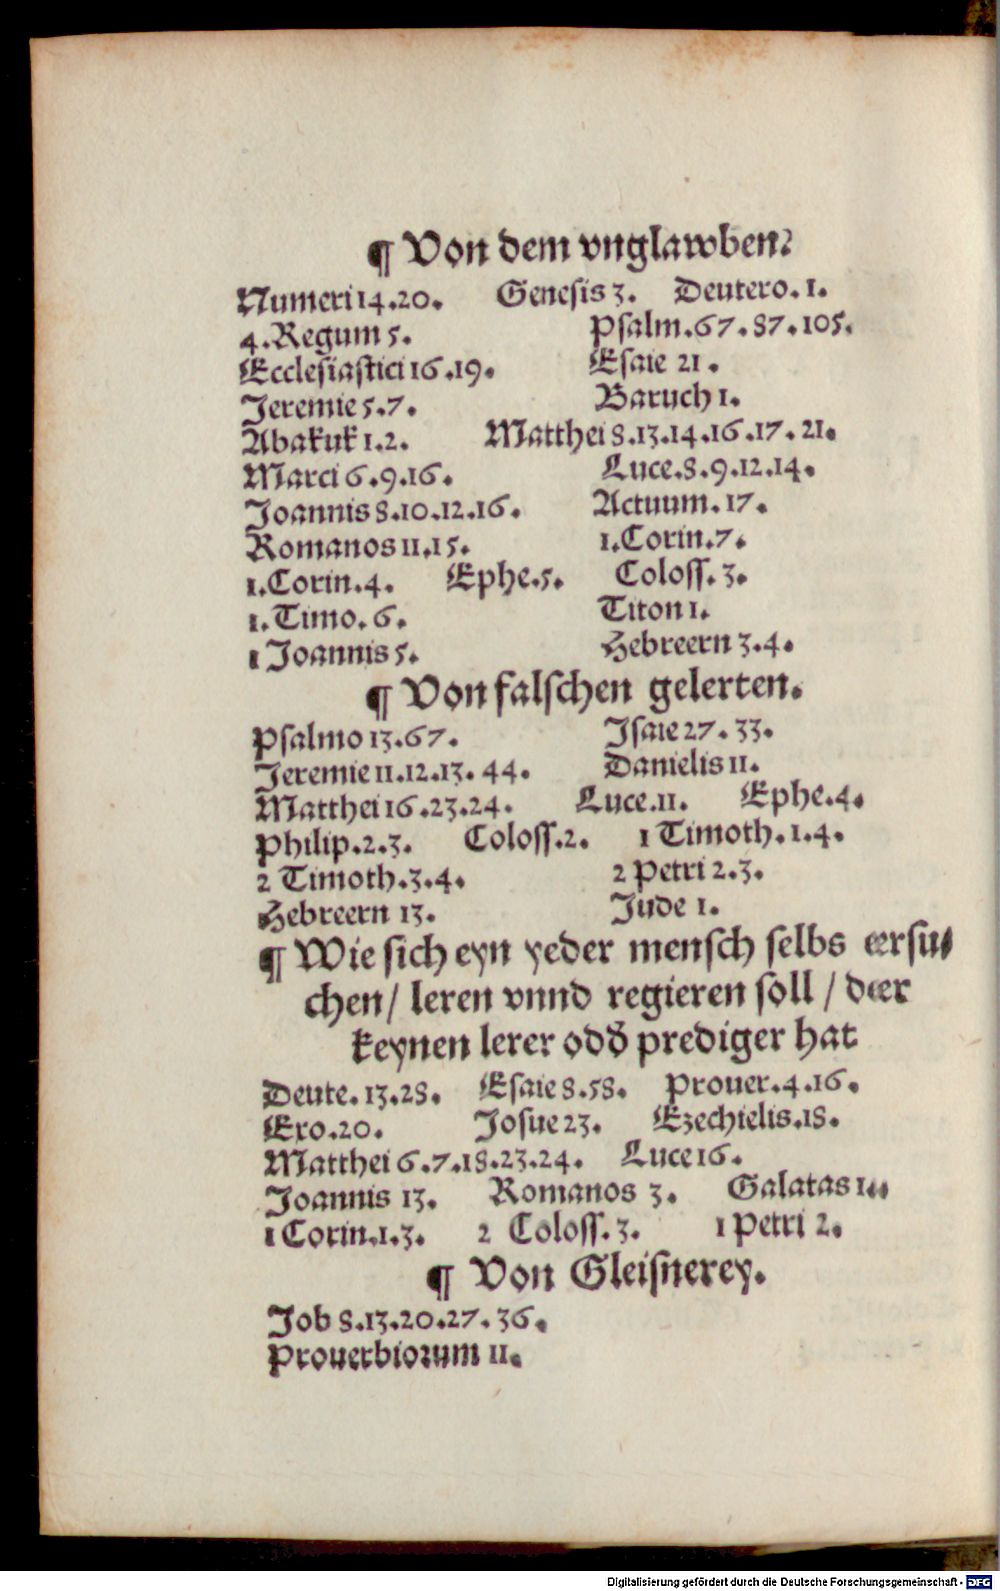 ¶ Von dem vnglawben?
Numeri 14.20. Genesis 3. Deutero. 1.
4. Regum 5. Psalm. 67. 87. 105.
Ecclesiastici 16.19. Esaie 21.
Jeremie 5.7. Baruch 1.
Abakuk 1.2. Matthei 8.13.14.16.17.21.
Marci 6.9.16. Luce. 8.9.12.14.
Joannis 8.10.12.16. Actuum. 17.
Romanos 11.15. 1. Corin. 7.
1. Corin. 4. Ephe. 5. Coloſſ. 3.
1. Timo. 6. Titon 1.
1 Joannis 5. Hebreern 3.4.
¶ Von falſchen gelerten.
Psalmo 13.67. Jſaie 27. 33.
Jeremie 11.12.13. 44. Danielis 11.
Matthei 16.23.24. Luce. 11. Ephe. 4.
Philip. 2.3. Coloſſ. 2. 1 Timoth. 1.4.
2 Timoth. 3.4. 2 Petri 2.3.
Hebreern 13. Jude 1.
¶ Wie ſich eyn yeder menſch ſelbs erſu⸗
chen / leren vnnd regieren ſoll / der
keynen lerer odđ prediger hat
Deute. 13.28. Eſaie 8.58. Prouer. 4.16.
Exo. 20. Joſue 23. Ezechielis. 18.
Matthei 6.7.18.23.24. Luce 16.
Joannis 13. Romanos 3. Galatas 1.
1 Corin. 1.3. 2 Coloſſ. 3. 1 Petri 2.
¶ Von Gleiſnerey.
Job 8.13.20.27.36.
Prouerbiorum 11.
Digitalisierung gefördert durch die Deutsche Forschungsgemeinschaft - DFG